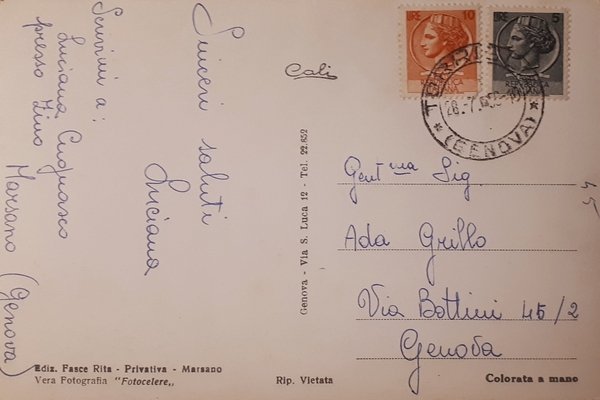 Sinceri saluti
Luciana
Scrivimi a:
Luciana Cugnasco
presso Zino
Marsano (Genova)
Cali
LIRE 10
LIRE 5
(GENOVA)
Gent.ma Sig.
Ada Grillo
Via Bottini 45/2
Genova
45
Genova - Via S. Luca 12 - Tel. 22.652
Ediz. Fasce Rita - Privativa - Marsano
Vera Fotografia "Fotocelere„
Rip. Vietata
Colorata a mano